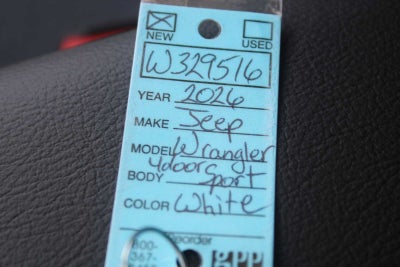 NEW USED
W329516
YEAR 2026
MAKE Jeep
MODEL Wrangler
BODY 4door Sport
COLOR White
800-
367-